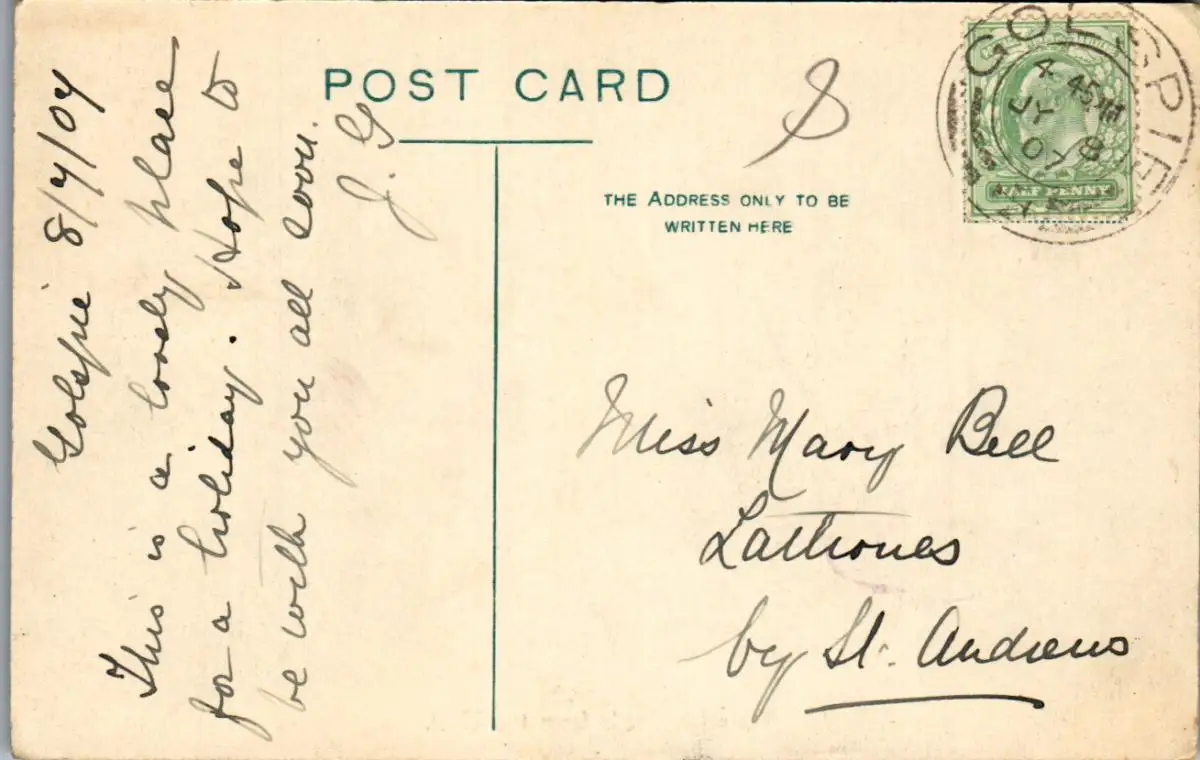 POST CARD
THE ADDRESS ONLY TO BE
WRITTEN HERE
GOLSPIE
4 45PM
JY 8
07
HALF PENNY
Golspie 8/7/07
This is a lovely place
for a holiday. Hope to
be with you all soon.
J. G
Miss Mary Bell
Lathones
by St. Andrews